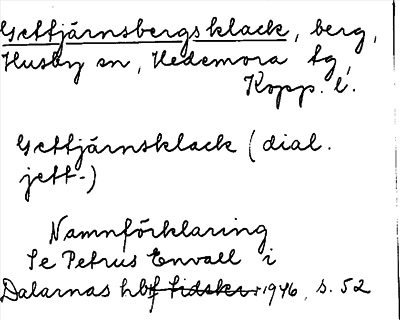 Gettjärnsbergsklack, berg,
Husby sn, Hedemora tg,
Kopp. l.
Gettjärnsklack (dial.
jett-)
Namnförklaring
Se Petrus Envall i
Dalarnas hbf tidskr. 1946, s. 52